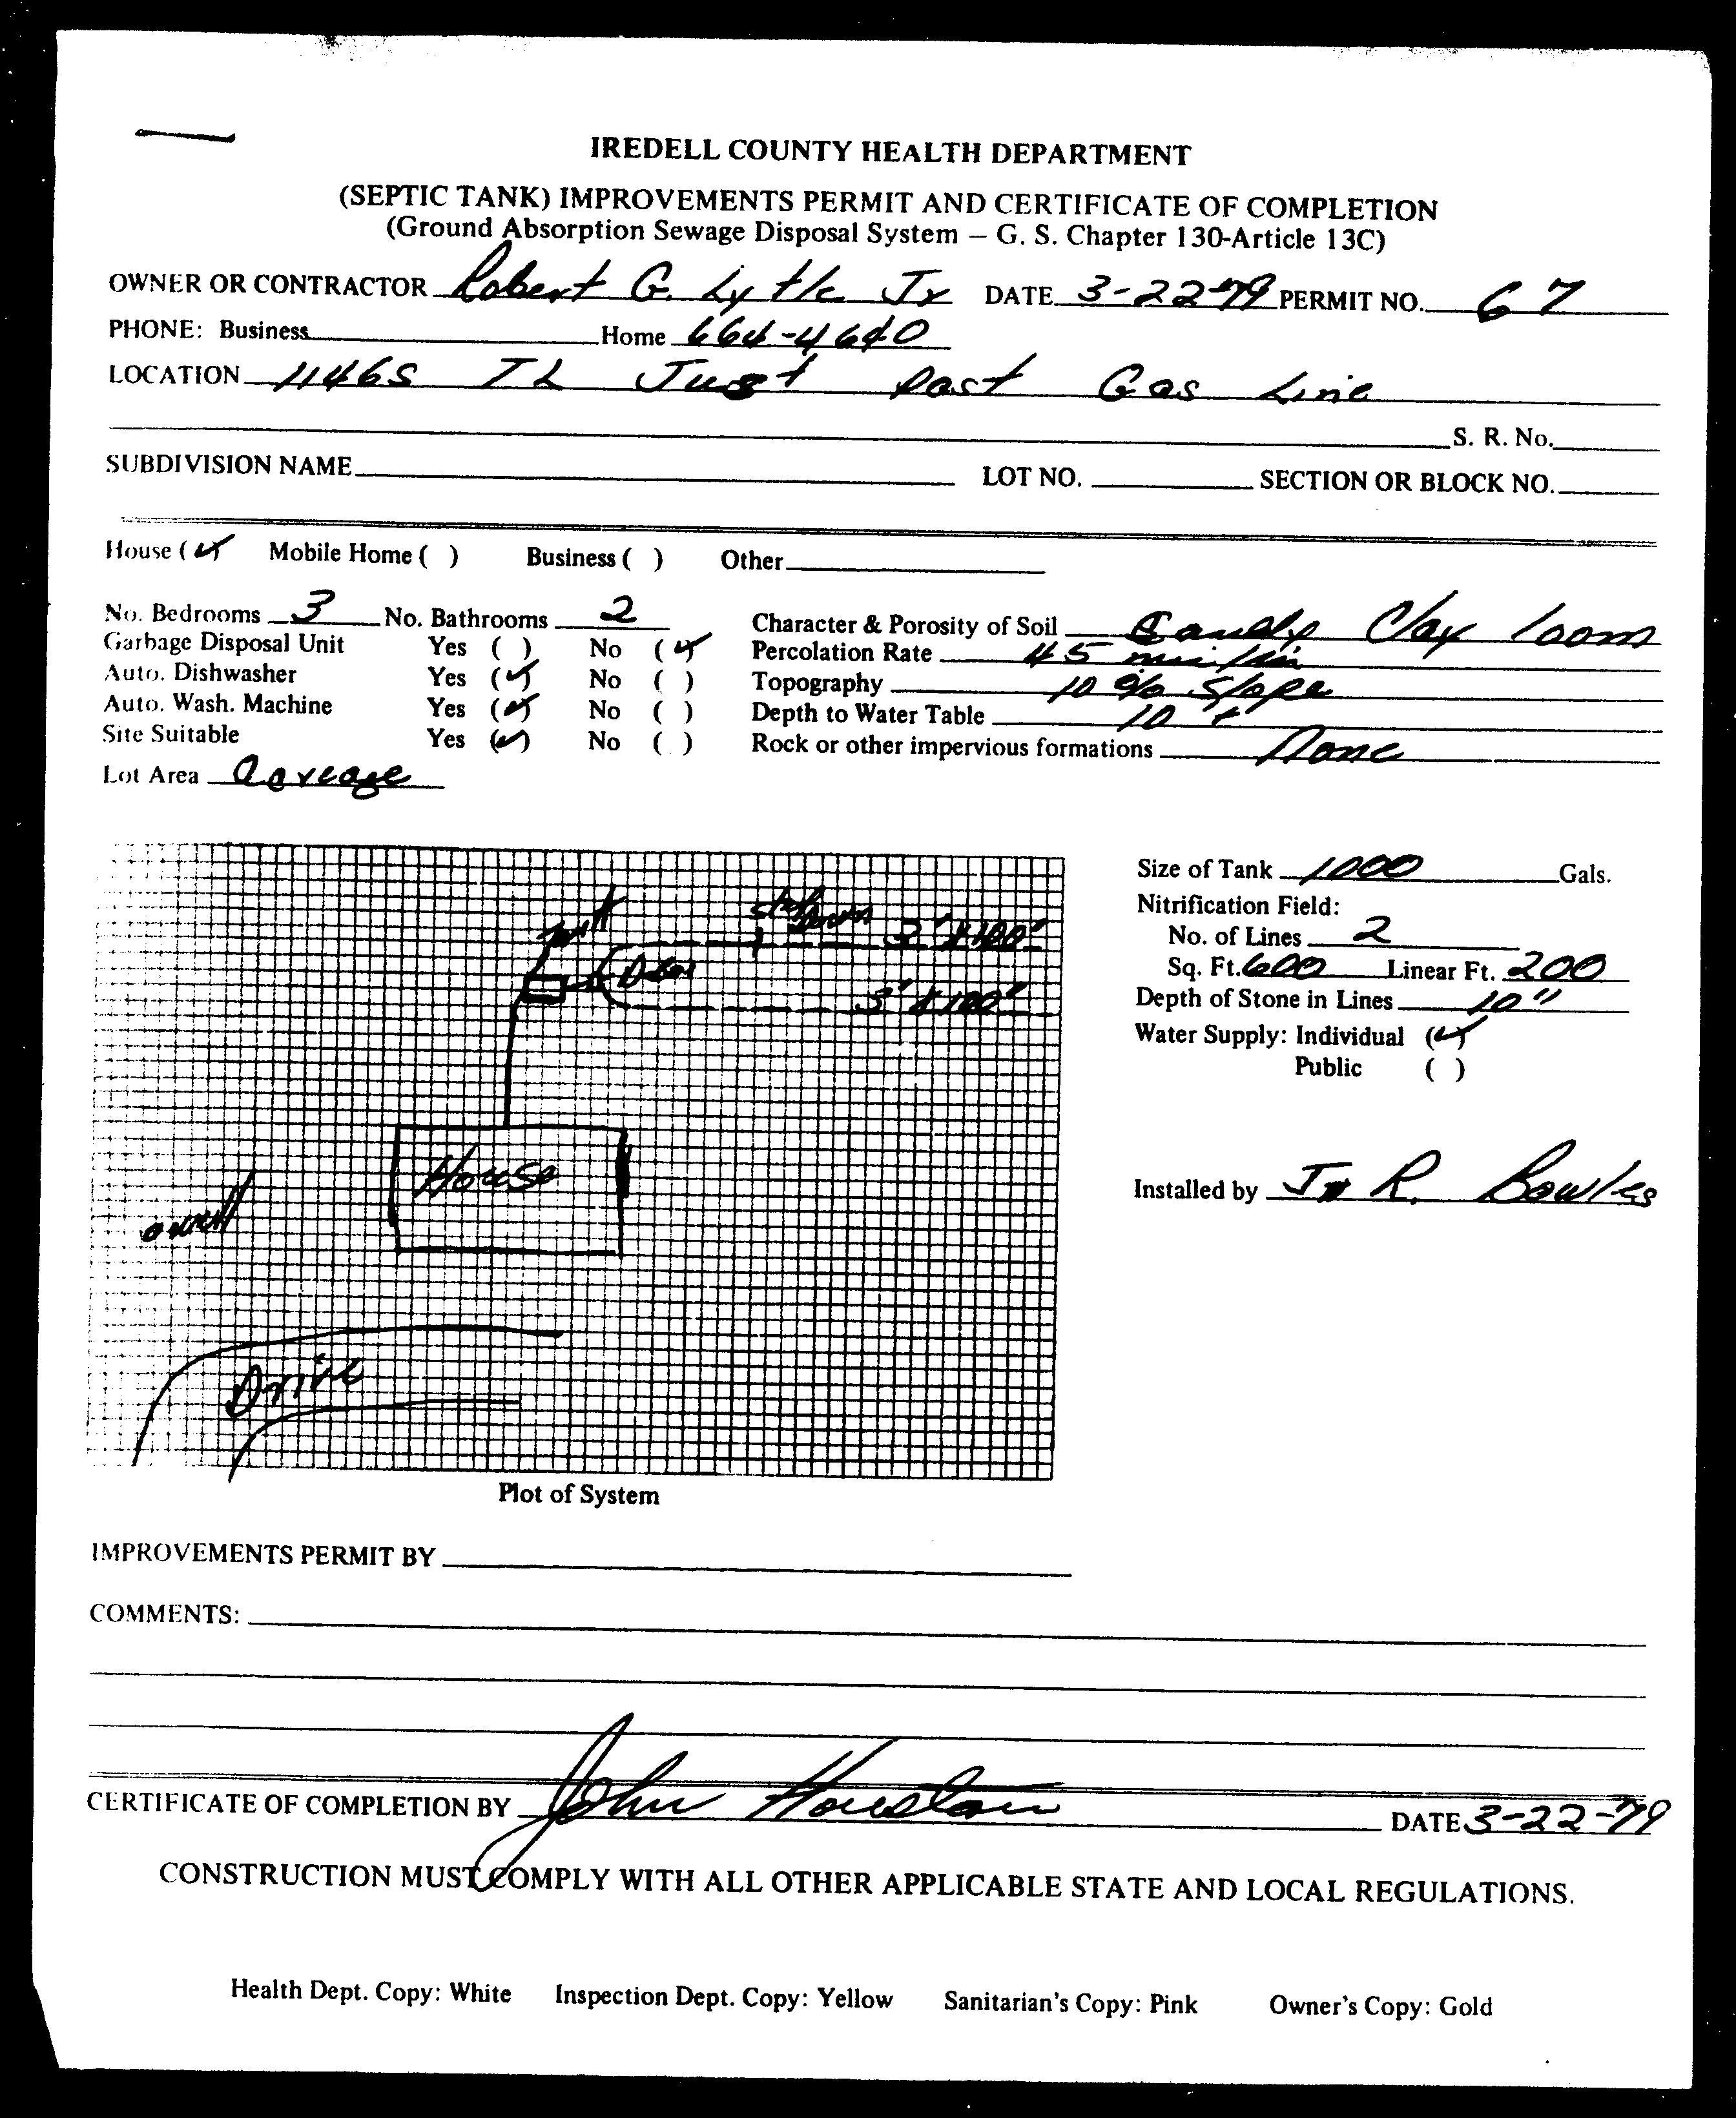 IREDELL COUNTY HEALTH DEPARTMENT
(SEPTIC TANK) IMPROVEMENTS PERMIT AND CERTIFICATE OF COMPLETION
(Ground Absorption Sewage Disposal System – G. S. Chapter 130-Article 13C)
OWNER OR CONTRACTOR Robert G. Lytle Jr DATE 3-22-79 PERMIT NO. 67
PHONE: Business Home 664-4640
LOCATION 1146S TL Just Past Gas Line
S. R. No.
SUBDIVISION NAME LOT NO. SECTION OR BLOCK NO.
House (✓) Mobile Home ( ) Business ( ) Other
No. Bedrooms 3 No. Bathrooms 2 Character & Porosity of Soil Sandy Clay loom
Garbage Disposal Unit Yes ( ) No (✓) Percolation Rate 45 min/in
Auto. Dishwasher Yes (✓) No ( ) Topography 10 % Slope
Auto. Wash. Machine Yes (✓) No ( ) Depth to Water Table 10 +
Site Suitable Yes (✓) No ( ) Rock or other impervious formations None
Lot Area Acreage
Size of Tank 1000 Gals.
Nitrification Field:
No. of Lines 2
Sq. Ft. 600 Linear Ft. 200
Depth of Stone in Lines 10"
Water Supply: Individual (✓)
Public ( )
Installed by R. Bowles
3' X 100'
D Box
3' X 100'
House
well
Drive
Plot of System
IMPROVEMENTS PERMIT BY
COMMENTS:
CERTIFICATE OF COMPLETION BY John Houston DATE 3-22-79
CONSTRUCTION MUST COMPLY WITH ALL OTHER APPLICABLE STATE AND LOCAL REGULATIONS.
Health Dept. Copy: White Inspection Dept. Copy: Yellow Sanitarian's Copy: Pink Owner's Copy: Gold